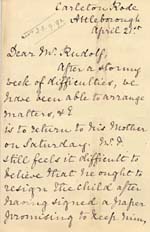 Carleton Rode
Attleborough
April 21st
Dear Mr. Rudolf,
After a stormy
week of difficulties, we
have been able to arrange
matters, & E
is to return to his Mother
on Saturday. Mr. D.
still feels it difficult to
believe that he ought to
resign the child after
having signed a paper
promising to keep him,